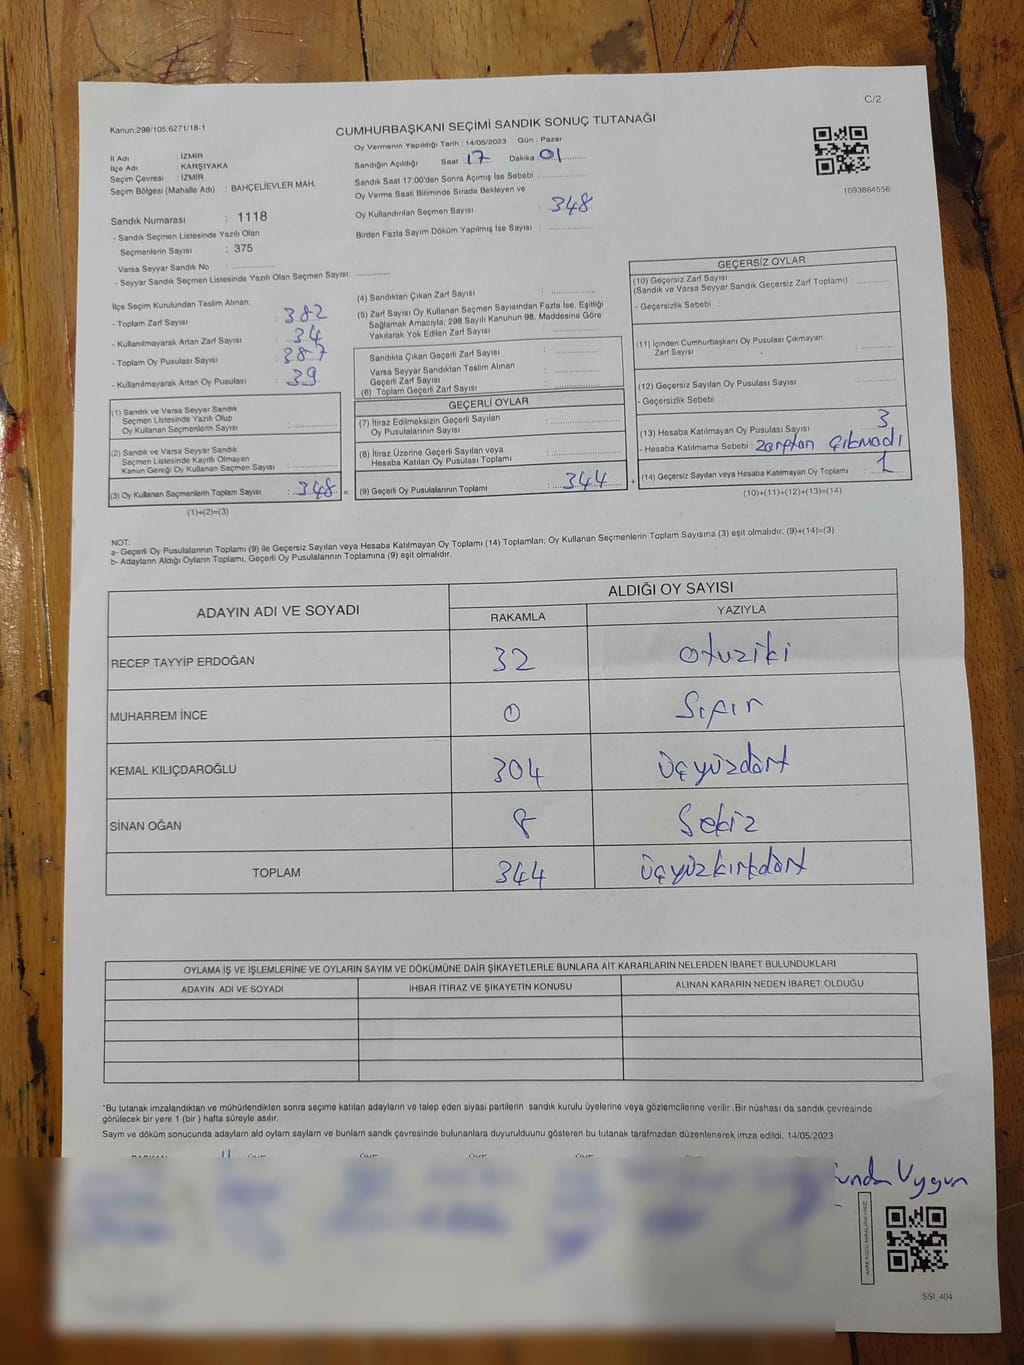 C/2
Kanun:298/105:6271/18-1
CUMHURBAŞKANI SEÇİMİ SANDIK SONUÇ TUTANAĞI
İl Adı : İZMİR
İlçe Adı : KARŞIYAKA
Seçim Çevresi : İZMİR
Seçim Bölgesi (Mahalle Adı) : BAHÇELİEVLER MAH.
Sandık Numarası : 1118
- Sandık Seçmen Listesinde Yazılı Olan
Seçmenlerin Sayısı : 375
Varsa Seyyar Sandık No : ..............
- Seyyar Sandık Seçmen Listesinde Yazılı Olan Seçmen Sayısı: ............
Oy Vermenin Yapıldığı Tarih : 14/05/2023 Gün : Pazar
Sandığın Açıldığı Saat :17 Dakika :01
Sandık Saat 17:00'den Sonra Açımış İse Sebebi : ..............
Oy Verme Saati Bitiminde Sırada Bekleyen ve
Oy Kullandırılan Seçmen Sayısı : 348
Birden Fazla Sayım Döküm Yapılmış İse Sayısı : ..............
1093864556
İlçe Seçim Kurulundan Teslim Alınan;
- Toplam Zarf Sayısı : 382
- Kullanılmayarak Artan Zarf Sayısı : 34
- Toplam Oy Pusulası Sayısı : 387
- Kullanılmayarak Artan Oy Pusulası : 39
(1) Sandık ve Varsa Seyyar Sandık
Seçmen Listesinde Yazılı Olup
Oy Kullanan Seçmenlerin Sayısı : ..............
(2) Sandık ve Varsa Seyyar Sandık
Seçmen Listesinde Kayıtlı Olmayan
Kanun Gereği Oy Kullanan Seçmen Sayısı : ..............
(3) Oy Kullanan Seçmenlerin Toplam Sayısı : 348 =
(1)+(2)=(3)
(4) Sandıktan Çıkan Zarf Sayısı : ..............
(5) Zarf Sayısı Oy Kullanan Seçmen Sayısından Fazla İse, Eşitliği
Sağlamak Amacıyla, 298 Sayılı Kanunun 98. Maddesine Göre
Yakılarak Yok Edilen Zarf Sayısı : ..............
Sandıkta Çıkan Geçerli Zarf Sayısı : ..............
Varsa Seyyar Sandıktan Teslim Alınan
Geçerli Zarf Sayısı : ..............
(6) Toplam Geçerli Zarf Sayısı : ..............
GEÇERLİ OYLAR
(7) İtiraz Edilmeksizin Geçerli Sayılan
Oy Pusulalarının Sayısı : ..............
(8) İtiraz Üzerine Geçerli Sayılan veya
Hesaba Katılan Oy Pusulası Toplamı : ..............
(9) Geçerli Oy Pusulalarının Toplamı : 344 +
GEÇERSİZ OYLAR
(10) Geçersiz Zarf Sayısı
(Sandık ve Varsa Seyyar Sandık Geçersiz Zarf Toplamı) : ..........
- Geçersizlik Sebebi :
(11) İçinden Cumhurbaşkanı Oy Pusulası Çıkmayan
Zarf Sayısı : ..........
(12) Geçersiz Sayılan Oy Pusulası Sayısı : ..........
- Geçersizlik Sebebi :
(13) Hesaba Katılmayan Oy Pusulası Sayısı : 3
- Hesaba Katılmama Sebebi : zarftan çıkmadı
(14) Geçersiz Sayılan veya Hesaba Katılmayan Oy Toplamı : 1
(10)+(11)+(12)+(13)=(14)
NOT:
a- Geçerli Oy Pusulalarının Toplamı (9) ile Geçersiz Sayılan veya Hesaba Katılmayan Oy Toplamı (14) Toplamları; Oy Kullanan Seçmenlerin Toplam Sayısına (3) eşit olmalıdır. (9)+(14)=(3)
b- Adayların Aldığı Oyların Toplamı, Geçerli Oy Pusulalarının Toplamına (9) eşit olmalıdır.
ADAYIN ADI VE SOYADI
ALDIĞI OY SAYISI
RAKAMLA YAZIYLA
RECEP TAYYİP ERDOĞAN 32 otuziki
MUHARREM İNCE 0 Sıfır
KEMAL KILIÇDAROĞLU 304 üçyüzdört
SİNAN OĞAN 8 Sekiz
TOPLAM 344 üçyüzkırkdört
OYLAMA İŞ VE İŞLEMLERİNE VE OYLARIN SAYIM VE DÖKÜMÜNE DAİR ŞİKAYETLERLE BUNLARA AİT KARARLARIN NELERDEN İBARET BULUNDUKLARI
ADAYIN ADI VE SOYADI İHBAR İTİRAZ VE ŞİKAYETİN KONUSU ALINAN KARARIN NEDEN İBARET OLDUĞU
*Bu tutanak imzalandıktan ve mühürlendikten sonra seçime katılan adayların ve talep eden siyasi partilerin sandık kurulu üyelerine veya gözlemcilerine verilir .Bir nüshası da sandık çevresinde
görülecek bir yere 1 (bir ) hafta süreyle asılır.
Sayım ve döküm sonucunda adayların ald oyların sayları ve bunların sandk çevresinde bulunanlara duyurulduunu gösteren bu tutanak tarafmzdan düzenlenerek imza edildi. 14/05/2023
Uygun
SSI_404